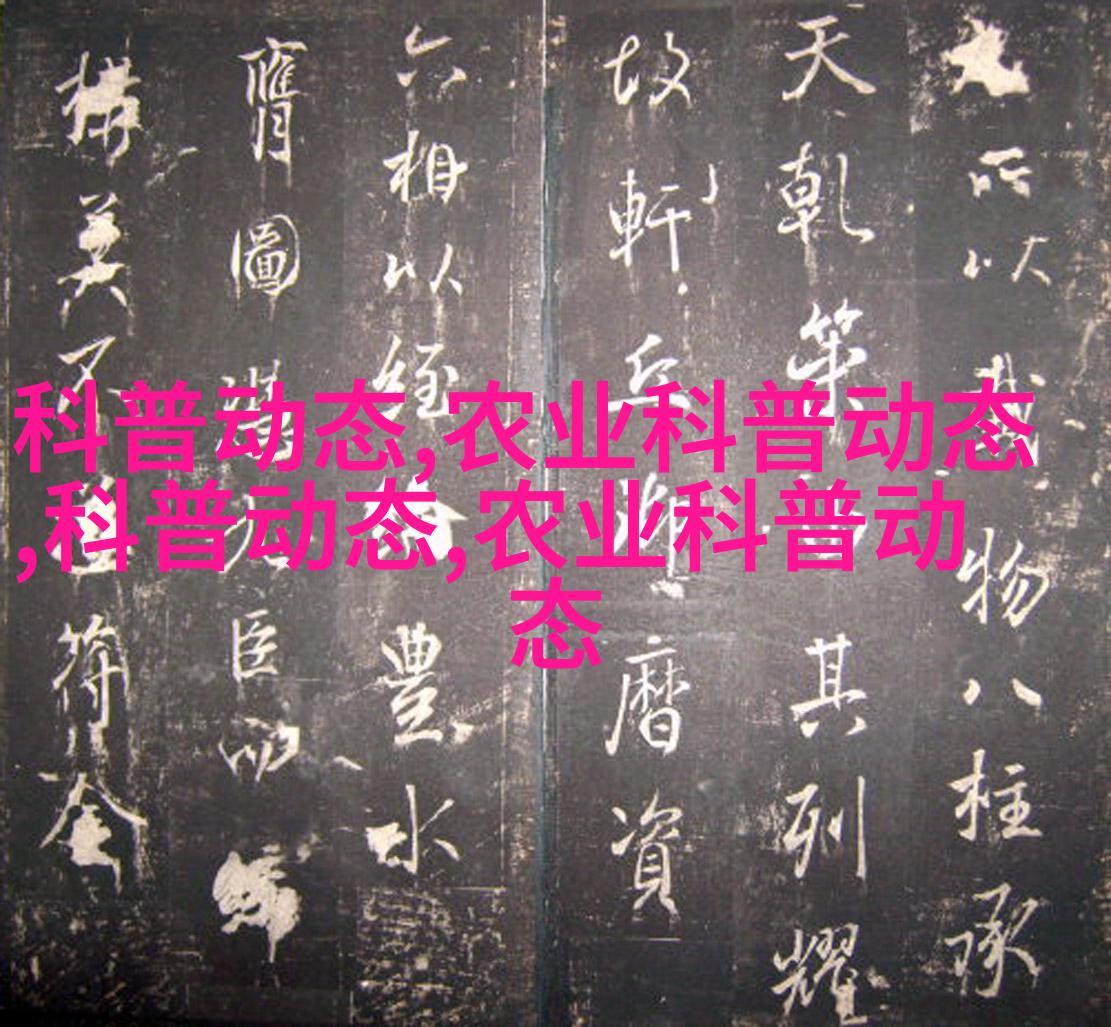 科普动态,农业科普动态
,科普动态,农业科普动
态
所以載物八柱承
天乾其列耀
故軒丘曆資
六相以經豐水
膺圖臣
構美不符奎